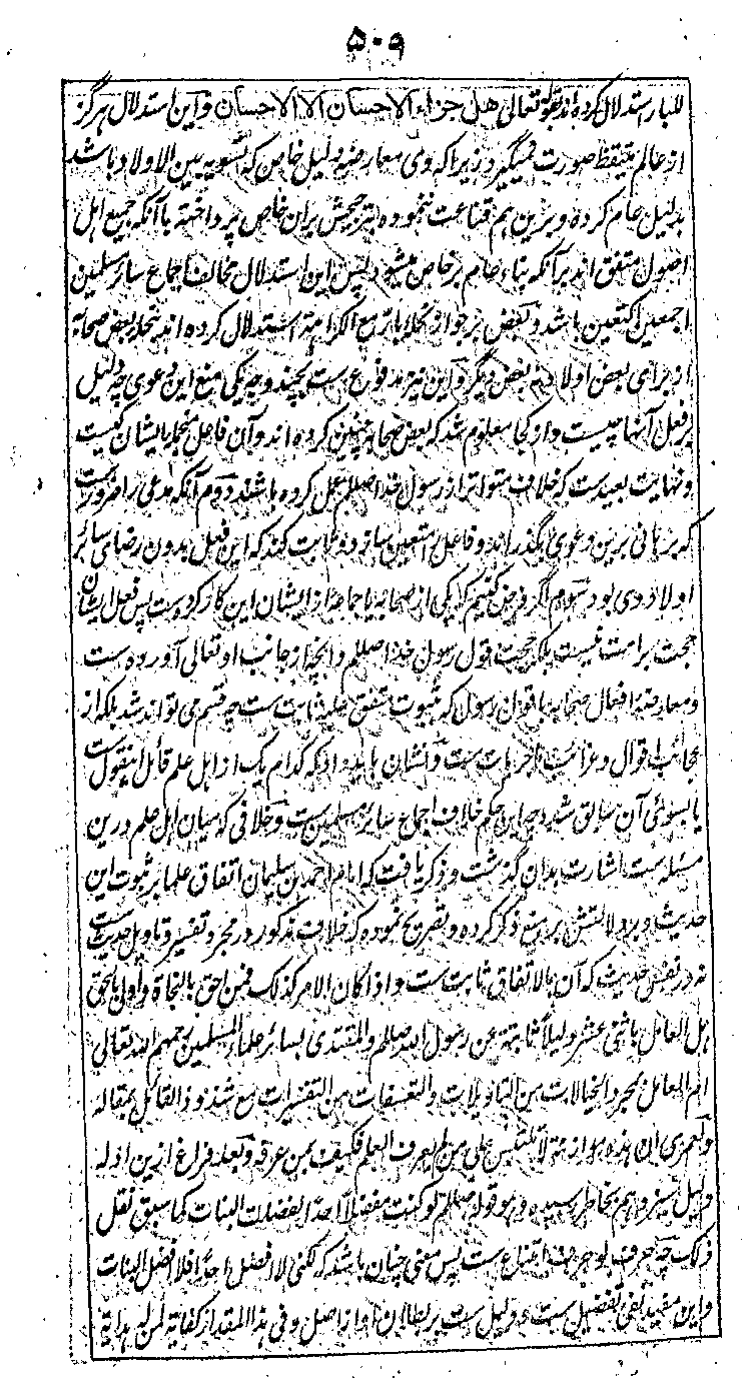 ۵۰۹
للبار استدلال کرده اند بقوله تعالی هل جزاء الاحسان الا الاحسان و این استدلال هرگز
از عالم متیقظ صورت نمیگیرد زیرا که وی معارضه دلیل خاص که تسویه بین الاولاد باشد
بدلیل عام کرده و برین هم قناعت ننموده بترجیحش بران خاص پرداخته با آنکه جمیع اهل
اصول متفق اند برآنکه بناء عام بر خاص میشود پس این استدلال مخالف اجماع سائر مسلمین
اجمعین اکتعین باشد و بعض بر جواز نحله بار مع الکراهة استدلال کرده اند بنحله بعض صحابه
از برای بعض اولاد نه بعض دیگر و این نیز مدفوع ست بچند وجه یکی منع این دعوی چه دلیل
بر فعل آنها چیست و از کجا معلوم شد که بعض صحابه چنین کرده اند و آن فاعل منجمله ایشان کیست
و نهایت بعید ست که خلاف متواتر از رسول خدا صللم عمل کرده باشند دوم آنکه مدعی را ضرورست
که برهانی برین دعوی بگذراند و فاعل را متعین سازد و ثابت کند که این فعل بدون رضای سائر
اولاد وی بود سوم اگر فرض کنیم که یکی از صحابه یا جماعه از ایشان این کار کرده ست پس فعل ایشان
حجت بر امت نیست بلکه حجت قول رسول خدا صللم و آنچه از جانب او تعالی آورده ست
و معارضه افعال صحابه باقوال رسول که ثبوت متفق علیه ثابت ست چه قسم می تواند شد بلکه از
عجائب اقوال و غرائب ماجریات ست و نشان باید داد که کدام یک از اهل علم قائل اینقول ست
یا بسوی آن سابق شد چه این حکم خلاف اجماع سائر مسلمین ست و خلافی که میان اهل علم درین
مسئله ست اشارت بدان گذشت و ذکر یافت که امام احمد بن سلیمان اتفاق علما بر ثبوت این
حدیث و بر دلالتش بر منع ذکر کرده و تصریح نموده که خلاف مذکور در مجرد تفسیر و تاویل حدیث ست
نه در نفس حدیث که آن بالاتفاق ثابت ست و اذا کان الامر کذلک فمن احق بالنجاة و اولی بالحق
هل العامل باثنی عشر دلیلا ثابتة عن رسول الله صللم و المقتدی بسائر علماء المسلمین رحمهم الله تعالی
ام العامل بمجرد الخیالات من التاویلات و التعسفات من التفسیرات مع شذوذ القائل بمقاله
و لعمری ان هذه موازنة لا تلتبس علی من لم یعرف العلم فکیف بمن عرفه و بعد فراغ ازین ادله
دلیل سیزدهم بخاطر رسیده و هو قوله صللم لو کنت مفضلا احدا لفضلت البنات کما سبق نقل
ذلک چه حرف لو حرف امتناع ست پس معنی چنان باشد که لکنی لا افضل احدا فلا افضل البنات
و این مفید نفی تفضیل ست و دلیل ست بر بطلان او از اصل و فی هذا المقدار کفایة لمن له هدایة